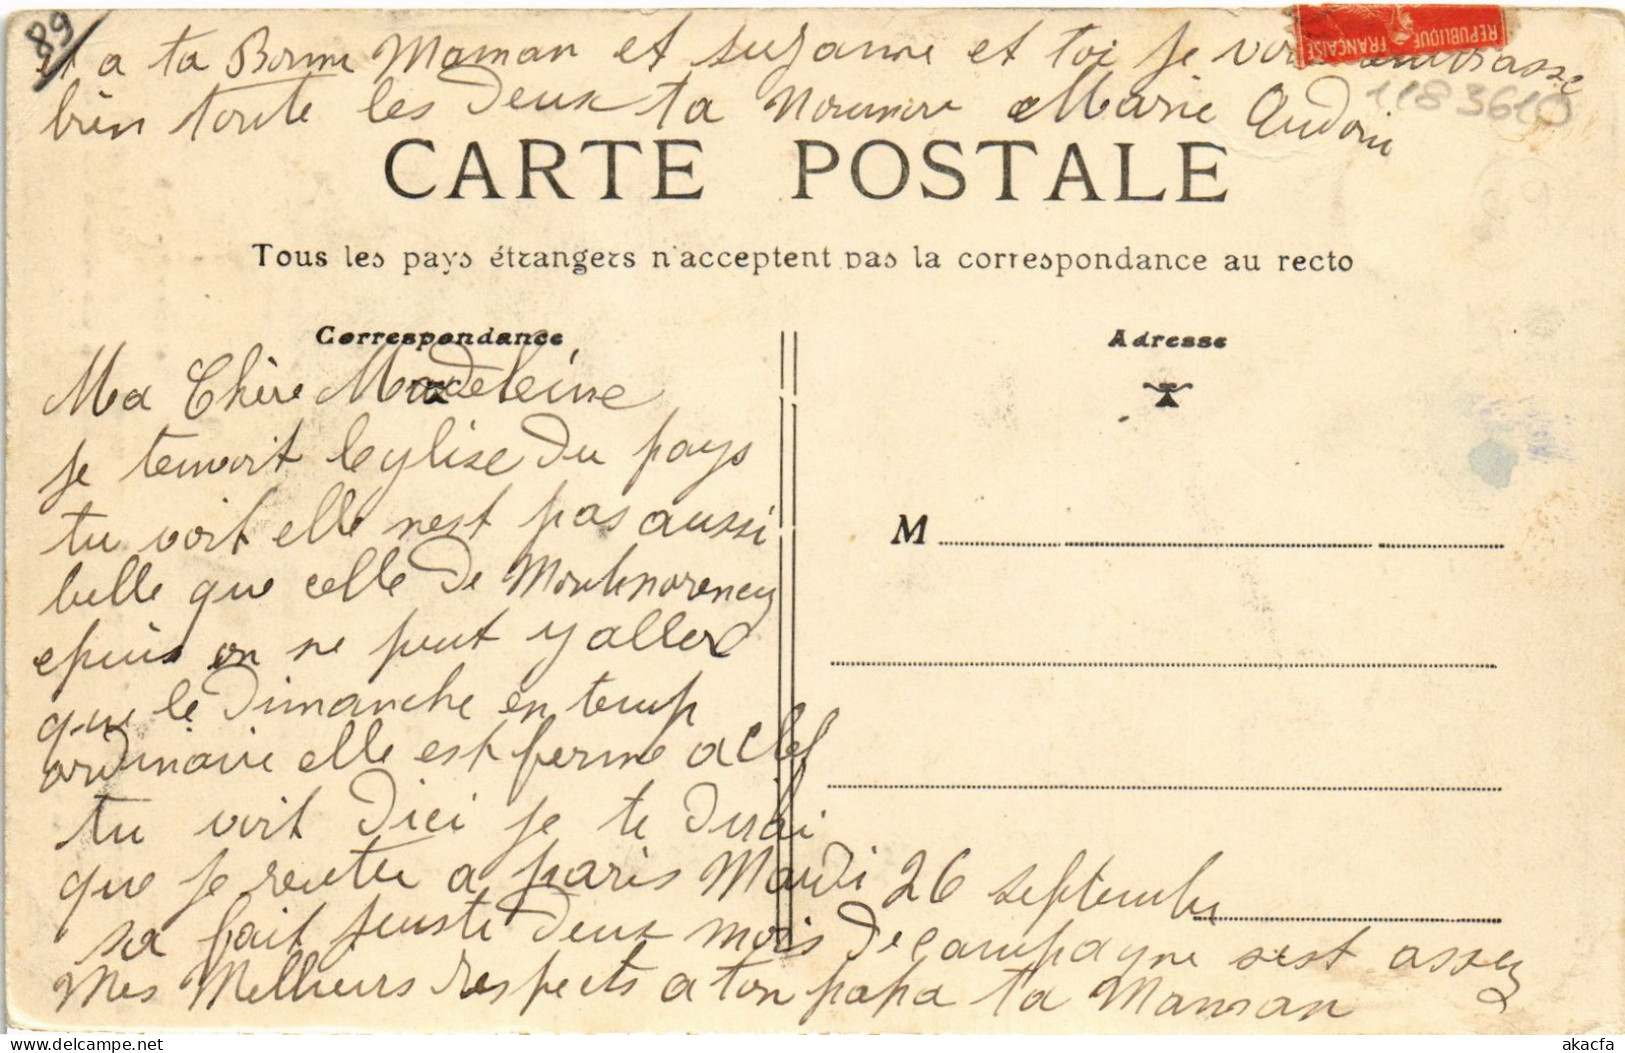 89
et a ta Bonne Maman et suzanne et toi je vous embrasse
bien toute les deux ta Nounou Marie Audoin
REPUBLIQUE FRANÇAISE
1183610
CARTE POSTALE
Tous les pays étrangers n'acceptent pas la correspondance au recto
Correspondance
Adresse
Ma Chère Madeleine
je tenvoit leglise du pays
tu voit elle nest pas aussi
belle que celle de Montmorency
epuis on ne peut y aller
que le Dimanche en temp
ordinaire elle est fermé a clef
tu voit Dici je te Dirai
que je rentre a paris Mardi 26 septembre
sa fait juste Deux mois De campagne sest assez
Mes Meilleurs respects a ton papa ta Maman
M
akacfa